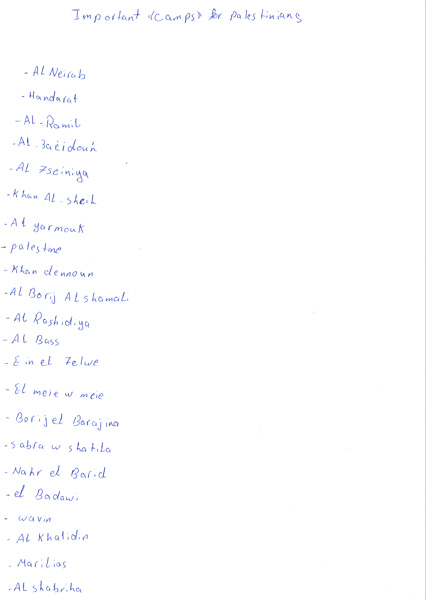 Important «Camps» for palestinians
- Al Neirab
- Handarat
- AL-Ramil
- AL-3aéidoun
- AL 7seiniya
- Khan AL-sheih
- AL yarmouk
- palestine
- Khan dennoun
- AL Borij AL shamali
- AL Rashidiya
- AL Bass
- Ein el 7elwe
- El meie w meie
- Borij el Barajina
- sabra w shatila
- Nahr el Barid
- el Badawi
- wavin
- AL Khalidin
- Marilias
- AL shabriha